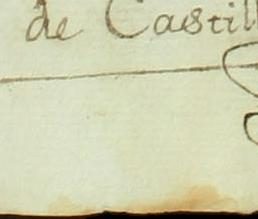 de Castill